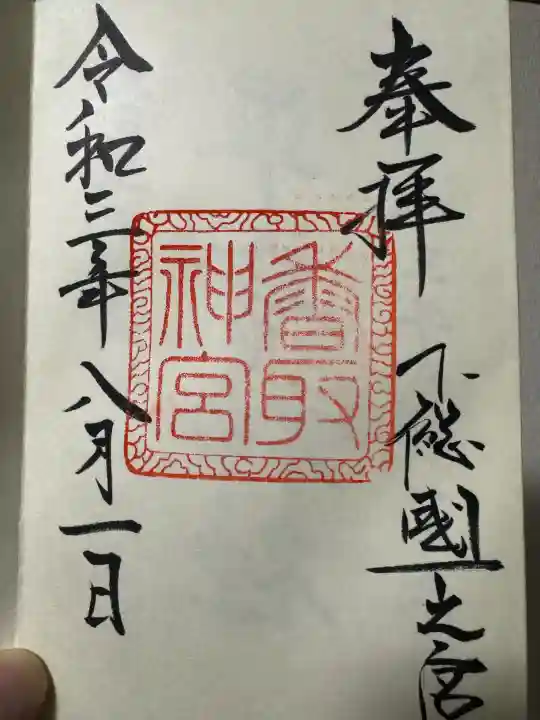 奉拝
下總國一之宮
香取
神宮
令和三年八月一日